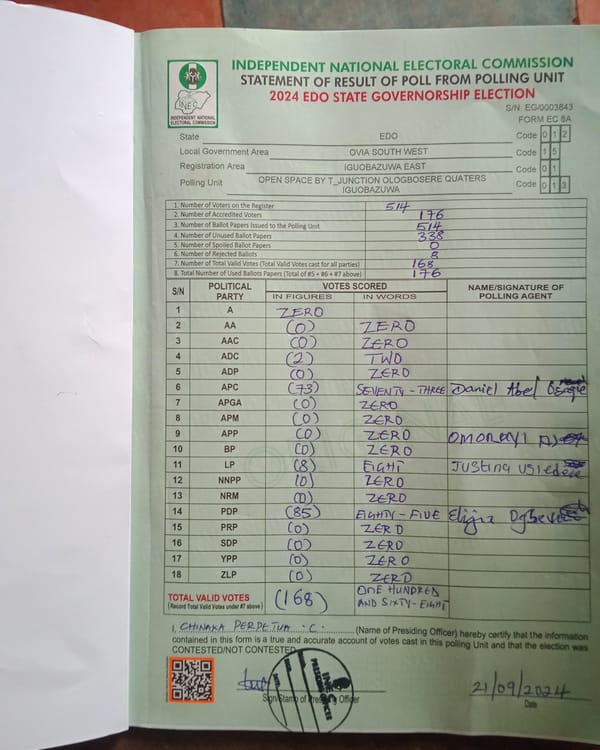 INDEPENDENT NATIONAL ELECTORAL COMMISSION
STATEMENT OF RESULT OF POLL FROM POLLING UNIT
2024 EDO STATE GOVERNORSHIP ELECTION
INEC
INDEPENDENT NATIONAL ELECTORAL COMMISSION
S/N: EG/0003843
FORM EC 8A
State EDO Code 0 1 2
Local Government Area OVIA SOUTH WEST Code 1 5
Registration Area IGUOBAZUWA EAST Code 0 1
Polling Unit OPEN SPACE BY T_JUNCTION OLOGBOSERE QUATERS IGUOBAZUWA Code 0 1 3
1. Number of Voters on the Register 514
2. Number of Accredited Voters 176
3. Number of Ballot Papers Issued to the Polling Unit 514
4. Number of Unused Ballot Papers 338
5. Number of Spoiled Ballot Papers 0
6. Number of Rejected Ballots 8
7. Number of Total Valid Votes (Total Valid Votes cast for all parties) 168
8. Total Number of Used Ballots Papers (Total of #5 + #6 + #7 above) 176
S/N POLITICAL PARTY VOTES SCORED NAME/SIGNATURE OF POLLING AGENT
IN FIGURES IN WORDS
1 A ZERO
2 AA (0) ZERO
3 AAC (0) ZERO
4 ADC (2) TWO
5 ADP (0) ZERO
6 APC (73) SEVENTY-THREE Daniel Abel Osagie
7 APGA (0) ZERO
8 APM (0) ZERO
9 APP (0) ZERO
10 BP (0) ZERO
11 LP (8) EIGHT Justina
12 NNPP (0) ZERO
13 NRM (0) ZERO
14 PDP (85) EIGHTY-FIVE
15 PRP (0) ZERO
16 SDP (0) ZERO
17 YPP (0) ZERO
18 ZLP (0) ZERO
TOTAL VALID VOTES (168) ONE HUNDRED AND SIXTY-EIGHT
(Record Total Valid Votes under #7 above)
I, CHINAKA PERPETUA .C. (Name of Presiding Officer) hereby certify that the information
contained in this form is a true and accurate account of votes cast in this polling Unit and that the election was
CONTESTED/NOT CONTESTED
INEC
PRESIDING OFFICER
Sign/Stamp of Presiding Officer
21/09/2024
Date